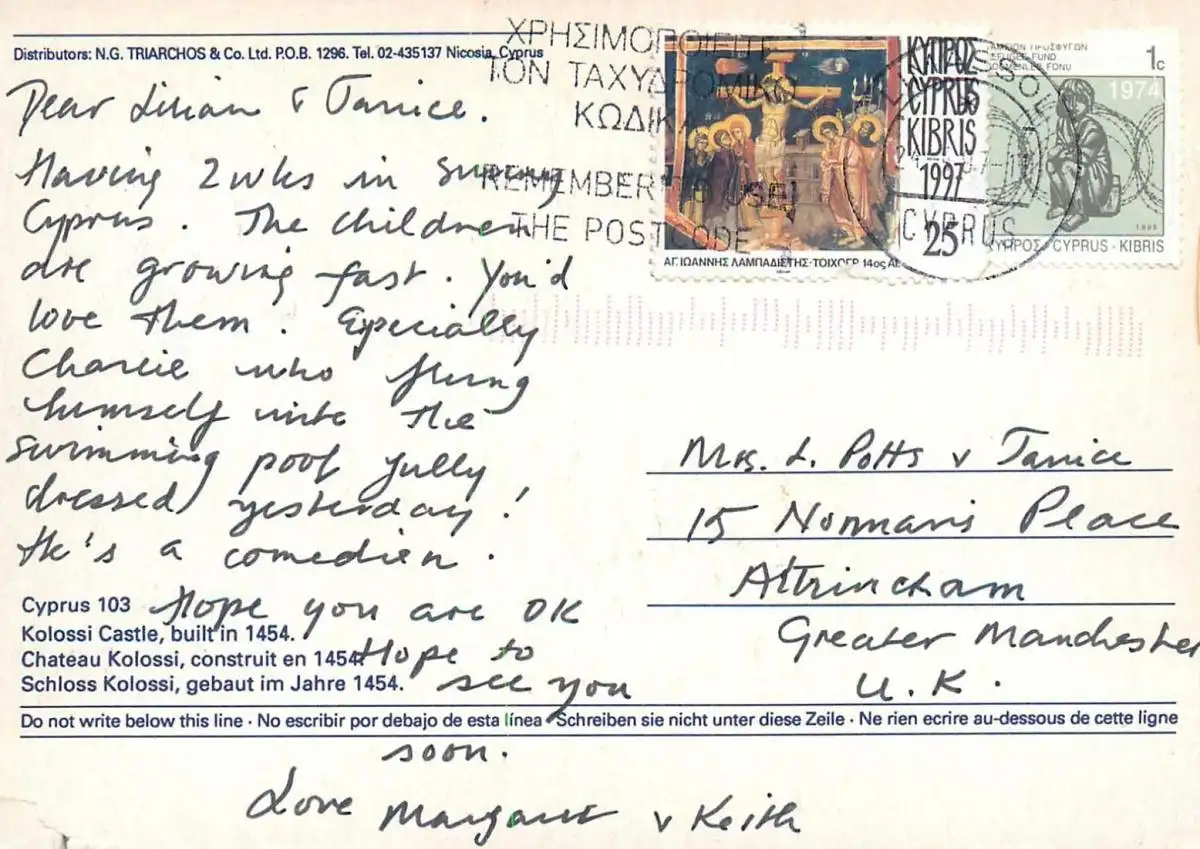 Distributors: N.G. TRIARCHOS & Co. Ltd. P.O.B. 1296. Tel. 02-435137 Nicosia, Cyprus
Dear Lilian & Janice.
Having 2 wks in sunny
Cyprus. The children
are growing fast. You'd
love them. Especially
Charlie who flung
himself into the
swimming pool fully
dressed yesterday!
He's a comedien.
Hope you are OK
Hope to
see you
soon.
Love Margaret & Keith
Cyprus 103
Kolossi Castle, built in 1454.
Chateau Kolossi, construit en 1454.
Schloss Kolossi, gebaut im Jahre 1454.
Do not write below this line · No escribir por debajo de esta línea · Schreiben sie nicht unter diese Zeile · Ne rien ecrire au-dessous de cette ligne
ΧΡΗΣΙΜΟΠΟΙΕΙΤΕ
ΤΟΝ ΤΑΧΥΔΡΟΜΙΚΟ
ΚΩΔΙΚΑ
REMEMBER TO USE
THE POSTCODE
ΚΥΠΡΟΣ
CYPRUS
KIBRIS
1997
25
ΑΓ. ΙΩΑΝΝΗΣ ΛΑΜΠΑΔΙΣΤΗΣ-ΤΟΙΧΟΓΡ. 14ος
CYPRUS
ΠΡΟΣΦΥΓΩΝ
REFUGEE FUND
1c
1974
ΚΥΠΡΟΣ · CYPRUS · KIBRIS
Mrs. L. Potts & Janice
15 Norman's Place
Altrincham
Greater Manchester
U.K.